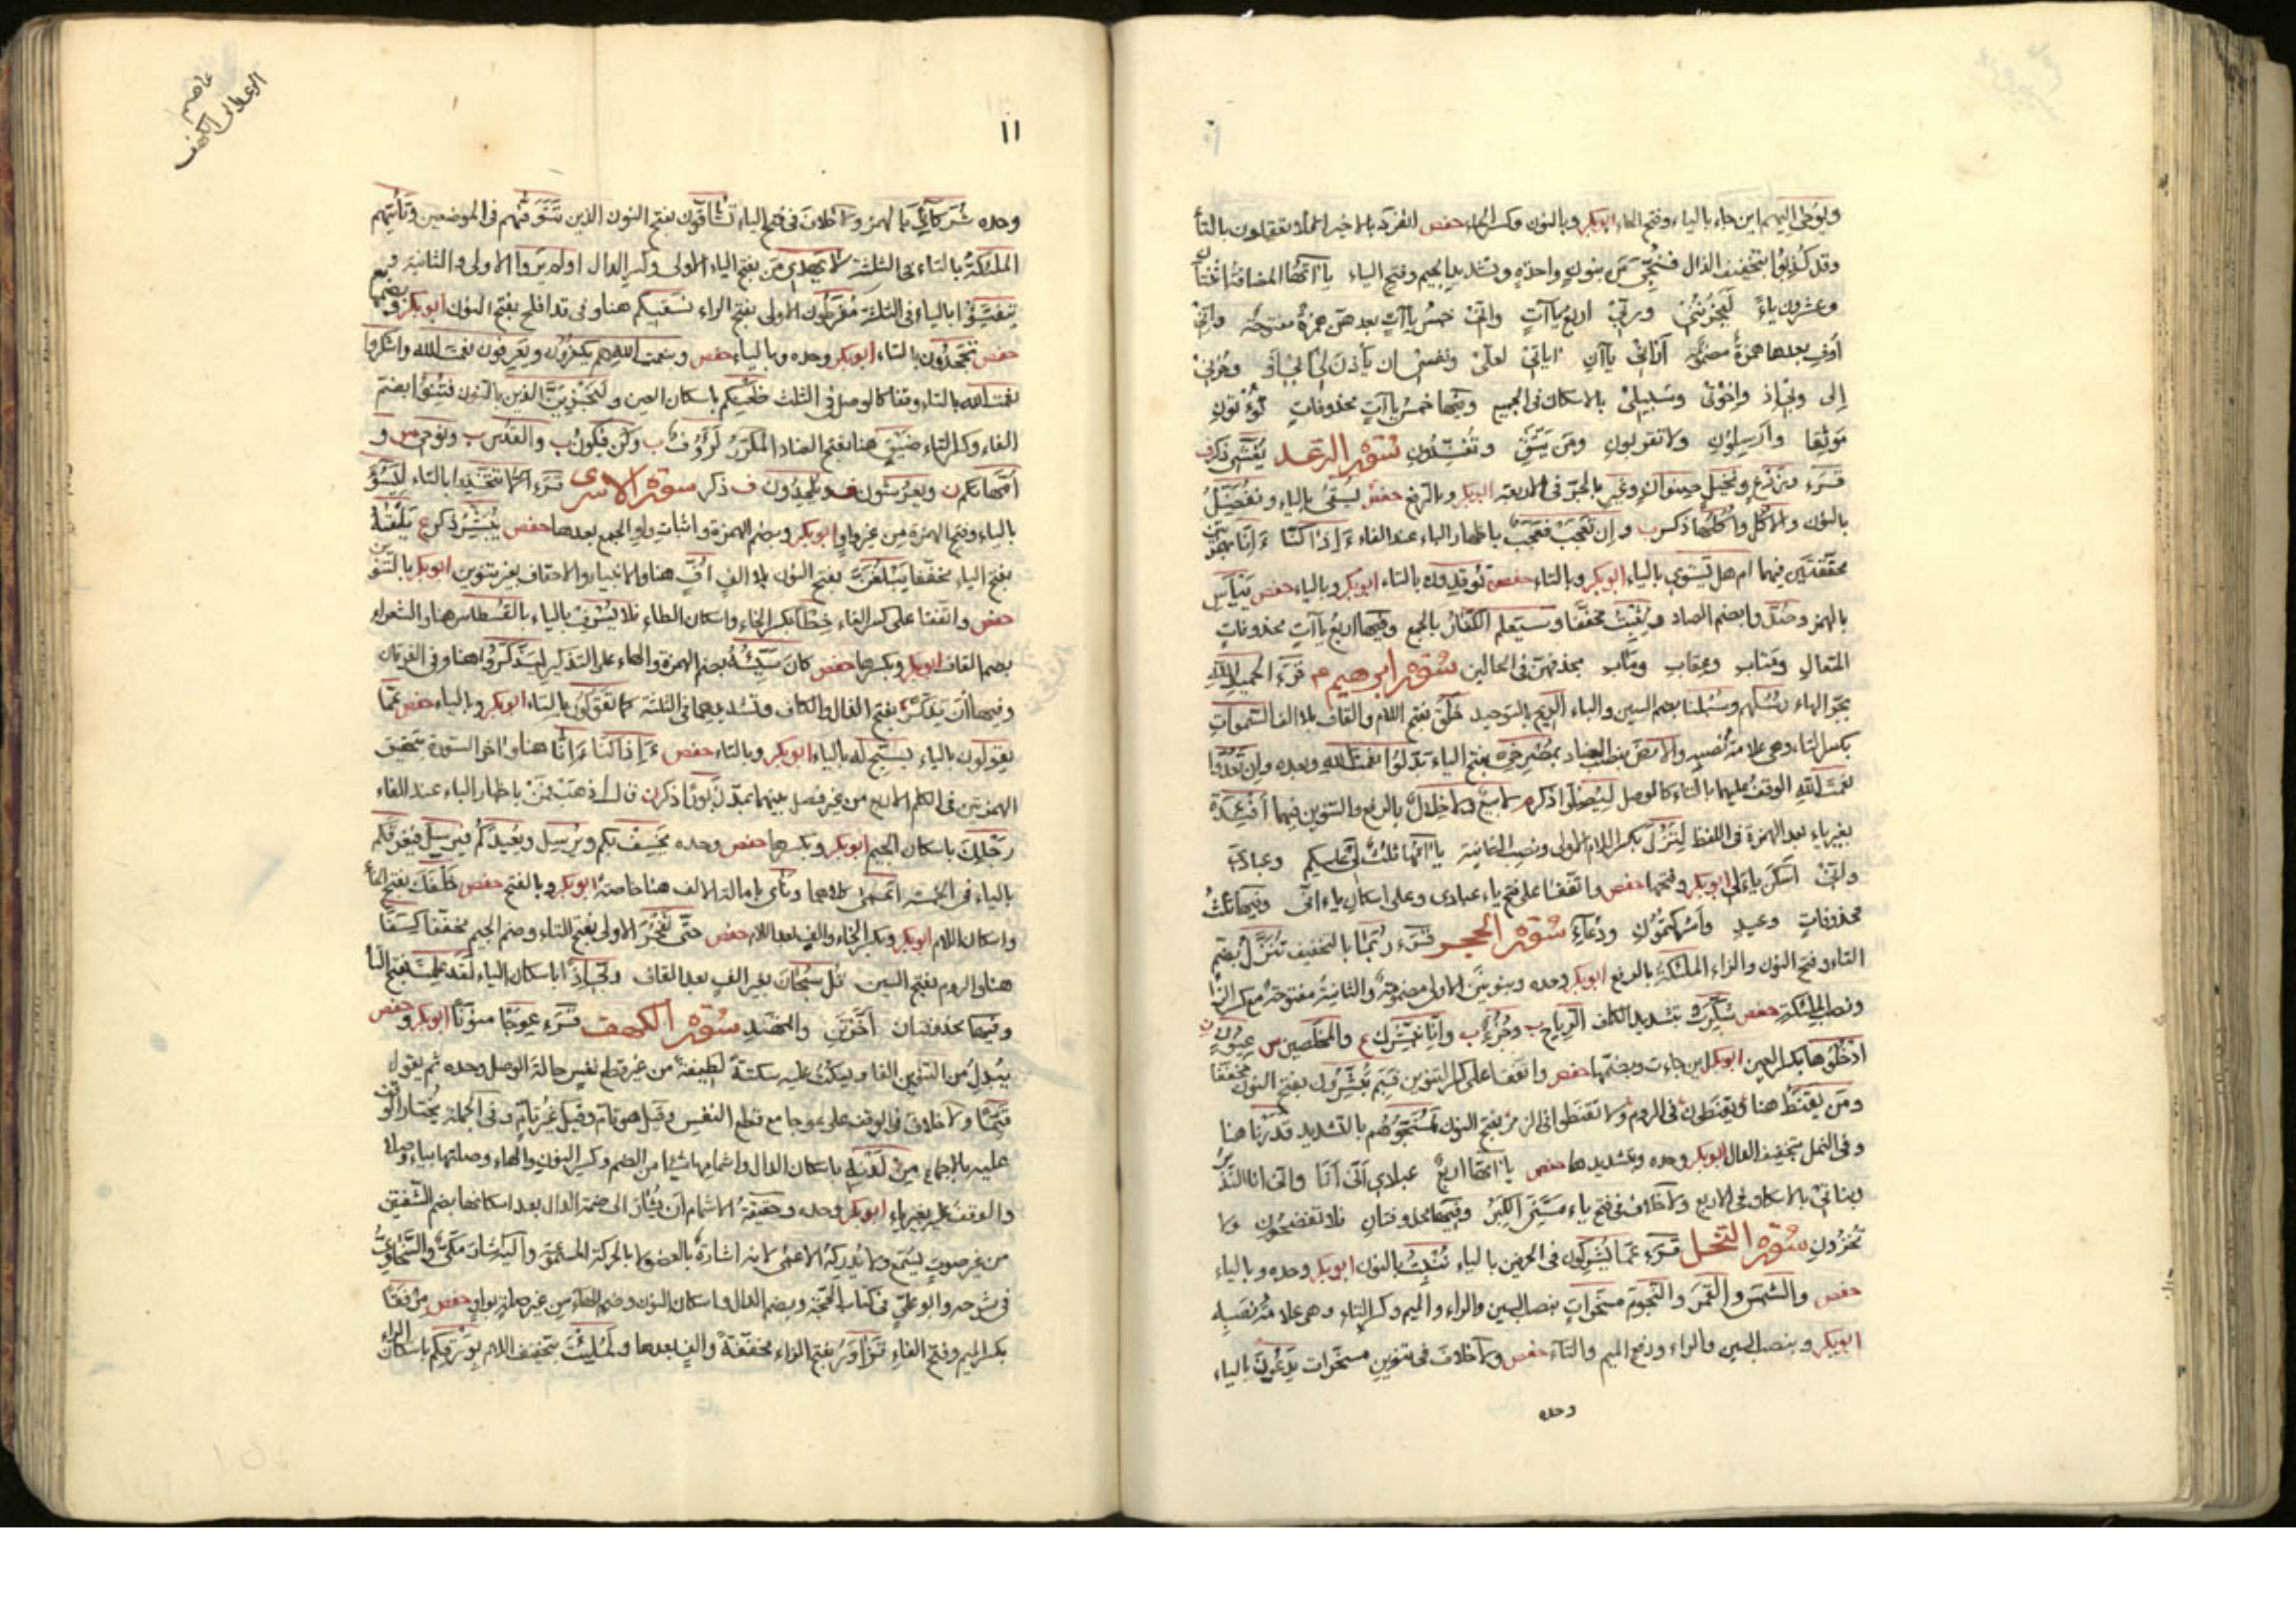 ويوحى اليهم اين جاء بالياء وفتح الحاء ابوبكر وبالنون وكسر الحاء حفص انفرد بالاخير افلا تعقلون بالتاء
وقد كذبوا بتخفيف الذال فنجي من بنون واحدة وتشديد الجيم وفتح الياء يا آتها المضافة اثنتان
وعشرون ياء ليحزنني وربي اربع يا آت واني خمس يا آت بعدهن همزة مفتوحة واني
اوف بعدها همزة مضمومة اراني يا آن اباءي لعلي ونفسي ان ياذن لي ابي او وحزني
الى وبي اذ واخوتي وسبيلي بالاسكان في الجميع وفيها خمس يا آت محذوفات تؤتون
موثقا وارسلون ولا تقربون ومن يتق وتفندون سورة الرعد يغشى ذكر ف
قرء وزرع ونخيل صنوان وغير بالجر في الاربعة ابوبكر وبالرفع حفص يسقى بالياء ونفضل
بالنون والاكل واكلها ذكر ب وان تعجب فعجب باظهار الباء عند الفاء ءاذا كنا ءانا بهمزتين
محققتين فيهما ام هل يستوي بالياء ابوبكر وبالتاء حفص توقدون بالتاء ابوبكر وبالياء حفص ييأس
بالهمز وصدوا بضم الصاد ويثبت مخففا وسيعلم الكفار بالجمع وفيها اربع يا آت محذوفات
المتعال ومتاب وعقاب ومآب بحذفهن في الحالين سورة ابرهيم م قرء الحميد الله
بجر الهاء رسلهم وسبلنا بضم السين والباء الريح بالتوحيد خلق بفتح اللام والقاف بلا الف السموات
بكسر التاء وهي علامة نصبه والارض بنصب الضاد بمصرخي بفتح الياء بدلوا نعمت الله وبعده وان تعدوا
نعمت الله الوقف عليهما بالتاء كالوصل ليضلوا ذكر م لا بيع ولا خلال بالرفع والتنوين فيهما افئدة
بغير ياء بعد الهمزة في اللفظ لتزول بكسر اللام الاولى ونصب الثانية يا آتها ثلث لي عليكم وعبادي
واني اسكن ياء لي ابوبكر وفتحها حفص واتفقا على فتح ياء عبادي وعلى اسكان ياء اني وفيها ثلث
محذوفات وعيد واشركتمون ودعاء سورة الحجر قرء ربما بالتخفيف تنزل بضم
التاء وفتح النون والزاء الملئكة بالرفع ابوبكر وحده وبنونين الاولى مضمومة والثانية مفتوحة مع كسر الزاء
ونصب الملئكة حفص سكرت بتشديد الكاف الرياح ب وجزء ب وانا نبشرك ع والمخلصين س عيون ن
ادخلوها بكسر العين ابوبكر اين جاءت وبضمها حفص واتفقا على كسر التنوين فبم تبشرون بفتح النون مخففا
ومن يقنط هنا ويقنطون في الروم ولا تقنطوا في الزمر بفتح النون لمنجوهم بالتشديد قدرنا هنا
وفي النمل بتخفيف الدال ابوبكر وحده وبتشديدها حفص يا آتها اربع عبادي اني انا واني انا النذير
وبناتي بالاسكان في الاربع ولا خلاف في فتح ياء مسني الكبر وفيها محذوفتان فلا تفضحون ولا
تخزون سورة النحل قرء عما يشركون في الحرفين بالياء ننبت بالنون ابوبكر وحده وبالياء
حفص والشمس والقمر والنجوم مسخرات بنصب السين والراء والميم وكسر التاء وهي علامة نصبه
ابوبكر وبنصب السين والراء ورفع الميم والتاء حفص ولا خلاف في تنوين مسخرات يدعون بالياء
وحده
عاصم
الرعد الى الكهف
١١
وحده شركآءي بالهمز ولا خلاف في فتح الياء تشاقون بفتح النون الذين تتوفهم في الموضعين وتأتيهم
الملئكة بالتاء في الثلثة لا يهدي من بفتح الياء الاولى وكسر الدال اولم يروا الاولى والثانية و
يتفيؤا بالياء في الثلثة مفرطون الاولى بفتح الراء نسقيكم هنا وفي قد افلح بفتح النون ابوبكر وبضمها
حفص تجحدون بالتاء ابوبكر وحده وبالياء حفص وبنعمت الله هم يكفرون ويعرفون نعمت الله واشكروا
نعمت الله بالتاء وقفا كالوصل في الثلث ظعنكم باسكان العين ولنجزين الذين بالنون فتنوا بضم
الفاء وكسر التاء ضيق هنا بفتح الضاد المكرر لرؤف ب وكن فيكون ب والقدس ب ونوحي س و
امهاتكم ن ويعرشون ف ويلحدون ف ذكر سورة الاسرى قرء الا تتخذوا بالتاء ليسوء
بالياء وفتح الهمزة من غير واو ابوبكر وبضم الهمزة واثبات واو الجمع بعدها حفص يبشر ذكر ع يلقيه
بفتح الياء مخففا يبلغن بفتح النون بلا الف اف هنا والانبياء والاحقاف بغير تنوين ابوبكر بالتنوين
حفص واتفقا على كسر الفاء خطأ بكسر الخاء واسكان الطاء فلا يسرف بالياء بالقسطاس هنا والشعراء
بضم القاف ابوبكر وبكسرها حفص كان سيئه بضم الهمزة والهاء على التذكير ليذكروا هنا وفي الفرقان
وفيها ان يذكر بفتح الذال والكاف وتشديدهما في الثلثة كما تقولون بالتاء ابوبكر وبالياء حفص عما
يقولون بالياء يسبح له بالياء ابوبكر وبالتاء حفص ءاذا كنا ءانا هنا واخر السورة بتحقيق
الهمزتين في الكلم الاربع من غير فصل بينهما زبورا ذكر ن قال اذهب فمن باظهار الباء عند الفاء
رجلك باسكان الجيم ابوبكر وبكسرها حفص وحده يخسف بكم ويرسل ويعيدكم فيرسل فيغرقكم
بالياء في الخمسة اعمى كلاهما ونأى بامالة الالف هنا خاصة ابوبكر وبالفتح حفص خلفك بفتح الخاء
واسكان اللام ابوبكر وبكسر الخاء والف بعد اللام حفص حتى تفجر الاولى بفتح التاء وضم الجيم مخففا كسفا
هنا والروم بفتح السين قل سبحان بغير الف بعد القاف ربي اذا باسكان الياء لقد علمت بفتح التاء
وفيها محذوفتان اخرتن والمهتد سورة الكهف قرء عوجا منونا ابوبكر وحفص
يبدل من التنوين الفا ويسكت عليه سكتة لطيفة من غير قطع نفس حالة الوصل وحده ثم يقول
قيما ولا خلاف في الوقف على عوجا مع قطع النفس وقيل هو تام وقيل غير تام وفي الجملة يختار الوقف
عليه بالاجماع من لدنه باسكان الدال واشمامها شيئا من الضم وكسر النون والهاء وصلتها بياء وصلا
والوقف عليه بغير ياء ابوبكر وحده وحقيقة الاشمام ان يشار الى ضمة الدال بعد اسكانها بضم الشفتين
من غير صوت يسمع ولا يدركه الاعمى لانه اشارة بالعضو لا بالحركة المسموعة واليه اشار مكي والسخاوي
في شرحه وابو علي في كتاب الحجة وبضم الدال واسكان النون وضم الهاء من غير صلة بواو حفص مرفقا
بكسر الميم وفتح الفاء تزاور بفتح الزاء مخففة والف بعدها ولملئت بتخفيف اللام بورقكم باسكان الراء